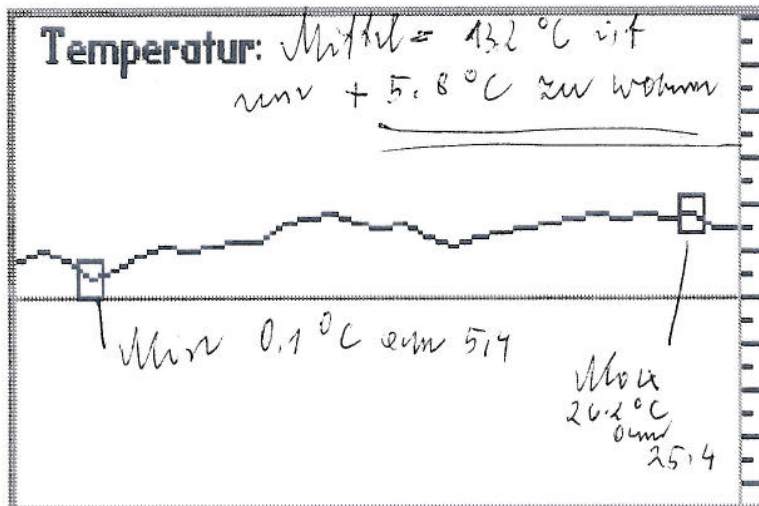 Temperatur: Mittel = 13.2 °C ist
nur + 5.8 °C zu warm
Min 0.1 °C am 5.4
Max
26.2 °C
am
25.4